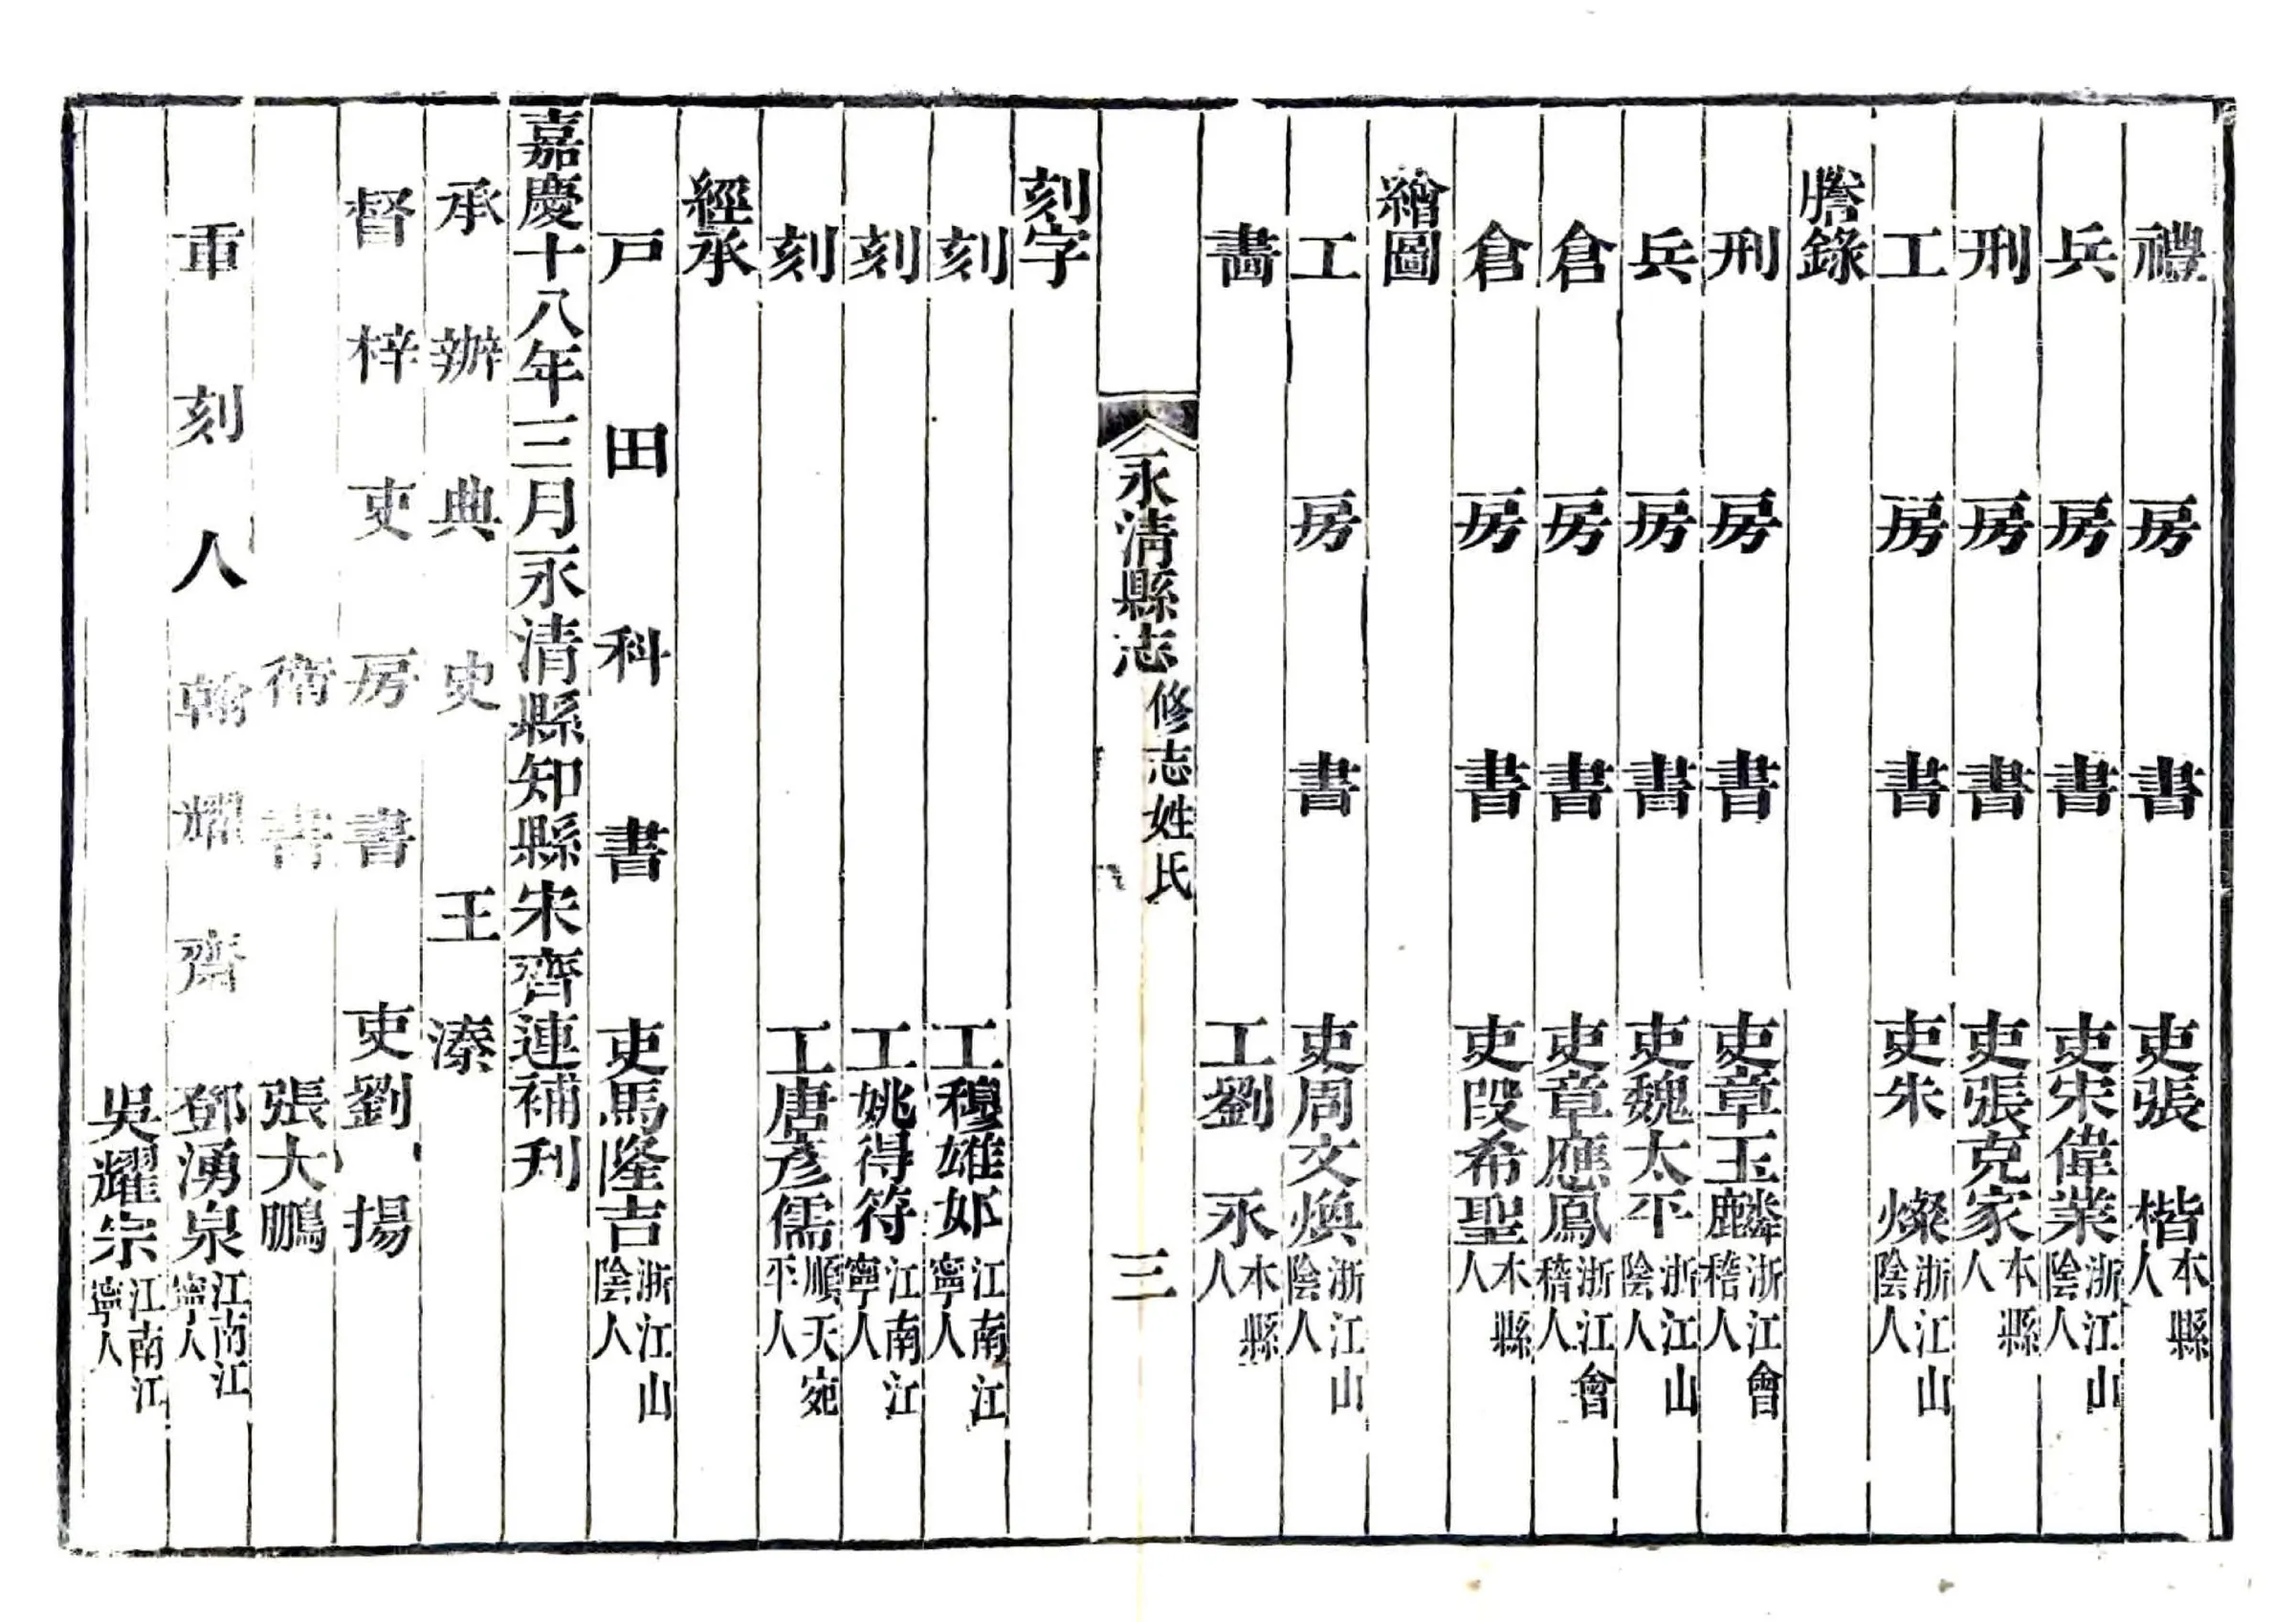 禮房書吏張楷本縣人
兵房書吏宋偉業浙江山陰人
刑房書吏張克家本縣人
工房書吏朱燦浙江山陰人
謄錄
刑房書吏章玉麟浙江會稽人
兵房書吏魏太平浙江山陰人
倉房書吏章應鳳浙江會稽人
倉房書吏段希聖本縣人
繪圖
工房書吏周文煥浙江山陰人
畫工劉永本縣人
永清縣志修志姓氏 三
刻字
刻工穆雄邟江南江寧人
刻工姚得符江南江寧人
刻工唐彥儒順天宛平人
經承
戶田科書吏馬隆吉浙江山陰人
嘉慶十八年三月永清縣知縣宋齊連補刊
承辦典史王溱
督梓吏房書吏劉揚
衛書張大鵬
重刻人翰耀齋鄧湧泉江南江寧人
吳耀宗江南江寧人